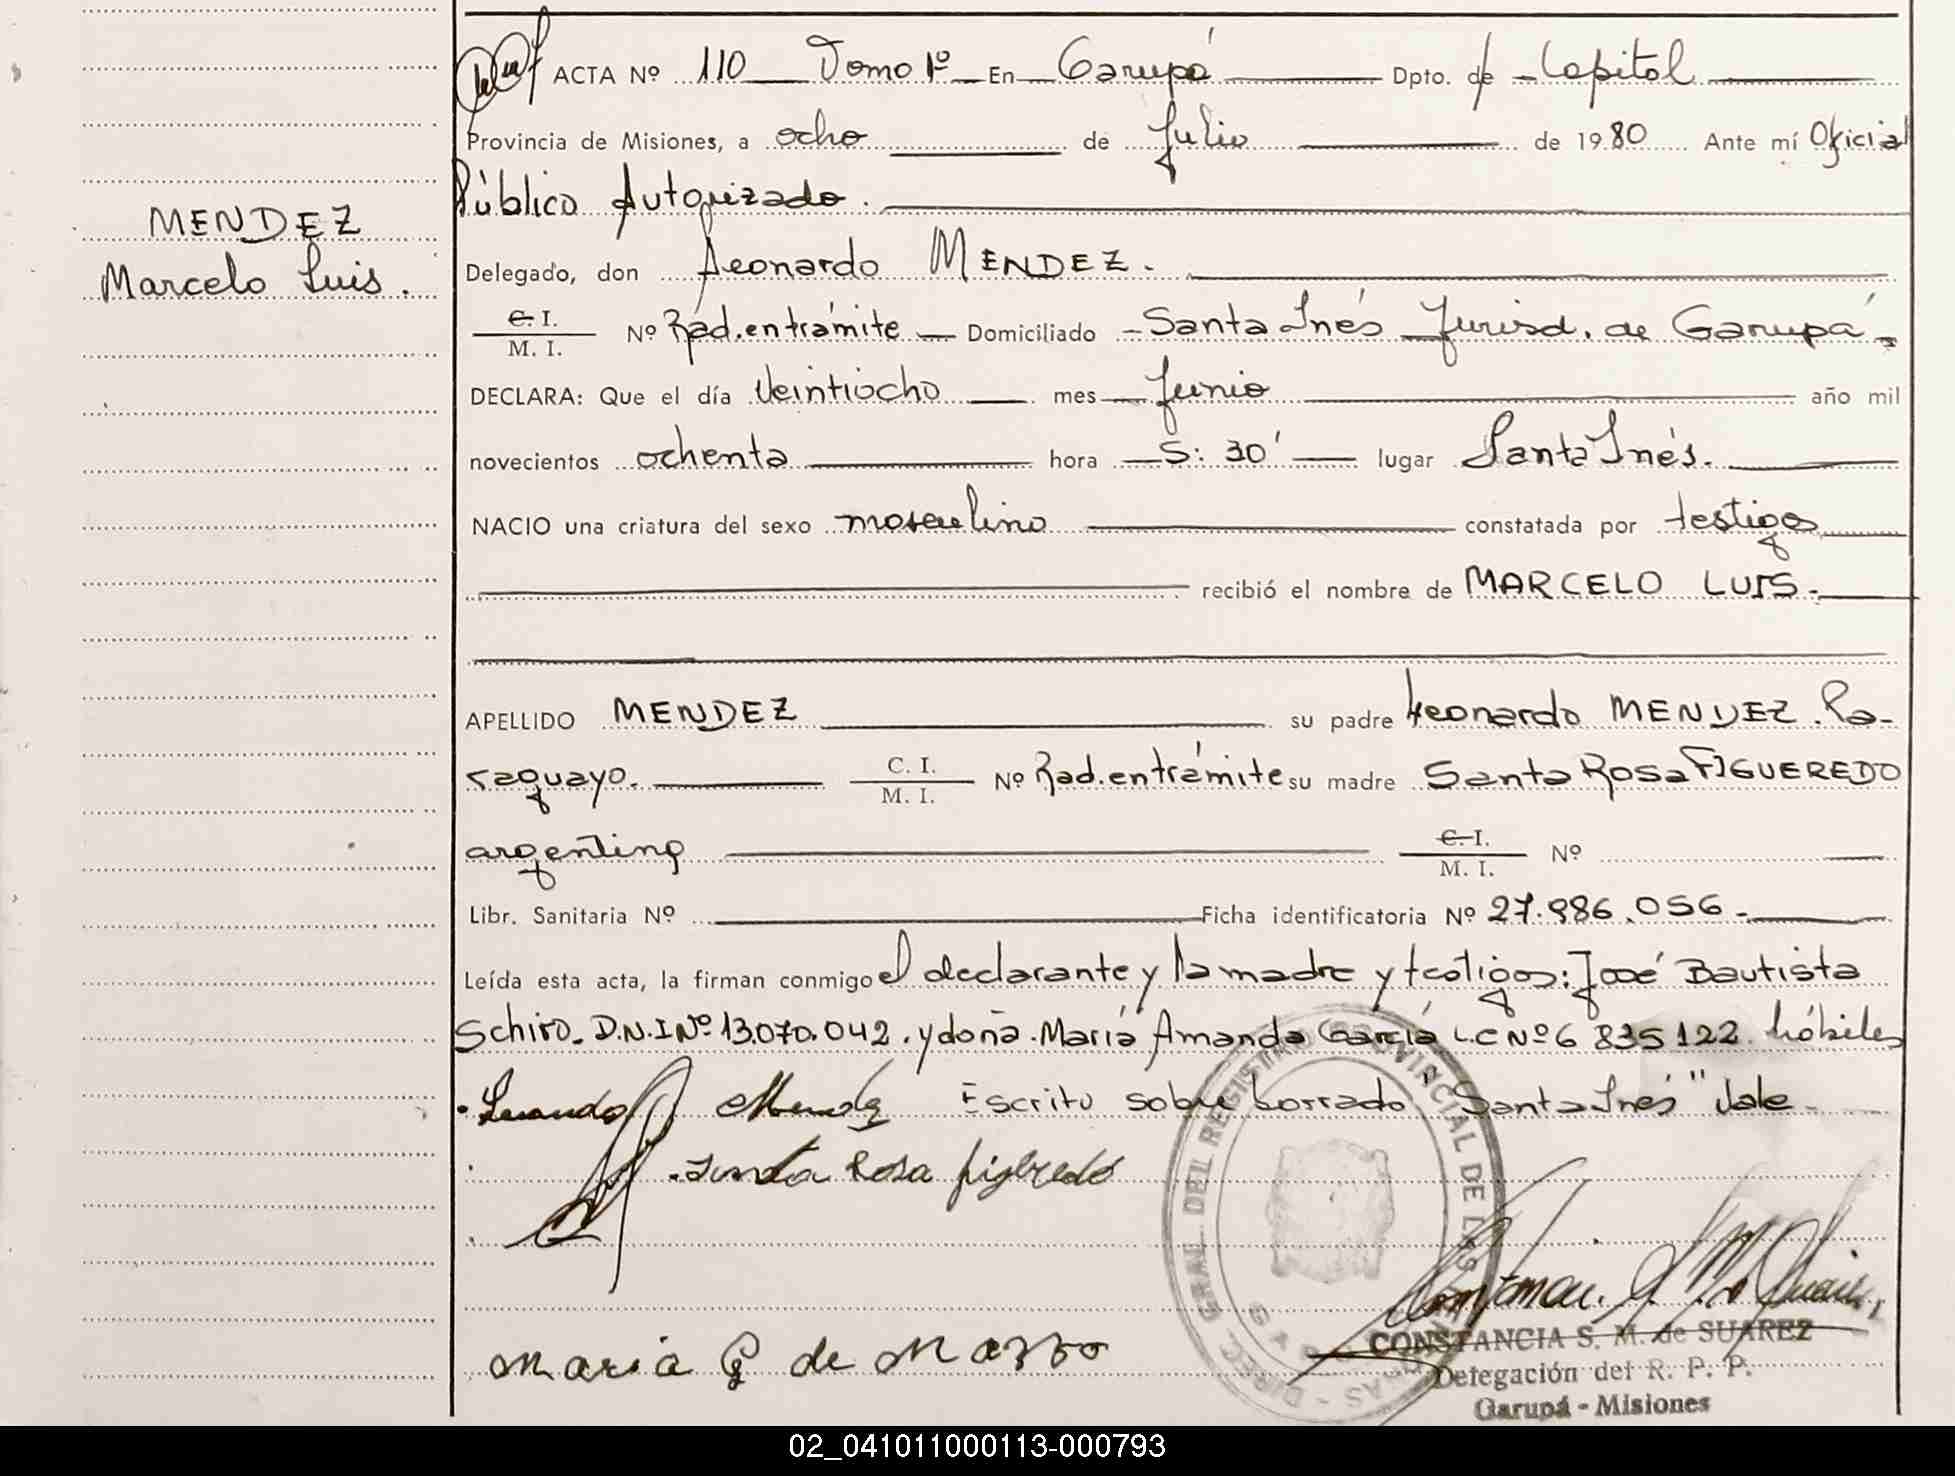 ACTA Nº 110 Tomo 1º En Garupá Dpto. de Capital
Provincia de Misiones, a ocho de Julio de 1980 Ante mí Oficial
Público Autorizado.
MENDEZ
Marcelo Luis.
Delegado, don Leonardo MENDEZ.
C. I. / M. I. Nº Rad. en trámite Domiciliado Santa Inés Jurisd. de Garupá
DECLARA: Que el día Veintiocho mes Junio año mil
novecientos ochenta hora 5:30' lugar Santa Inés.
NACIO una criatura del sexo masculino constatada por testigos
recibió el nombre de MARCELO LUIS.
APELLIDO MENDEZ su padre Leonardo MENDEZ. Pa-
raguayo. C. I. / M. I. Nº Rad. en trámite su madre Santa Rosa FIGUEREDO
argentina C. I. / M. I. Nº
Libr. Sanitaria Nº Ficha identificatoria Nº 27.986.056.
Leída esta acta, la firman conmigo el declarante y la madre y testigos: José Bautista
Schiro. D.N.I Nº 13.070.042. y doña. María Amanda García L.C Nº 6 835 122 hábiles
Escrito sobre borrado "Santa Inés" Vale
Santa Rosa figeredo
DIREC. GRAL. DEL REGISTRO PROVINCIAL DE LAS PERSONAS
GARUPA
Maria G de Mazzo
CONSTANCIA S. M. de SUAREZ
Delegación del R. P. P.
Garupá - Misiones
02_041011000113-000793